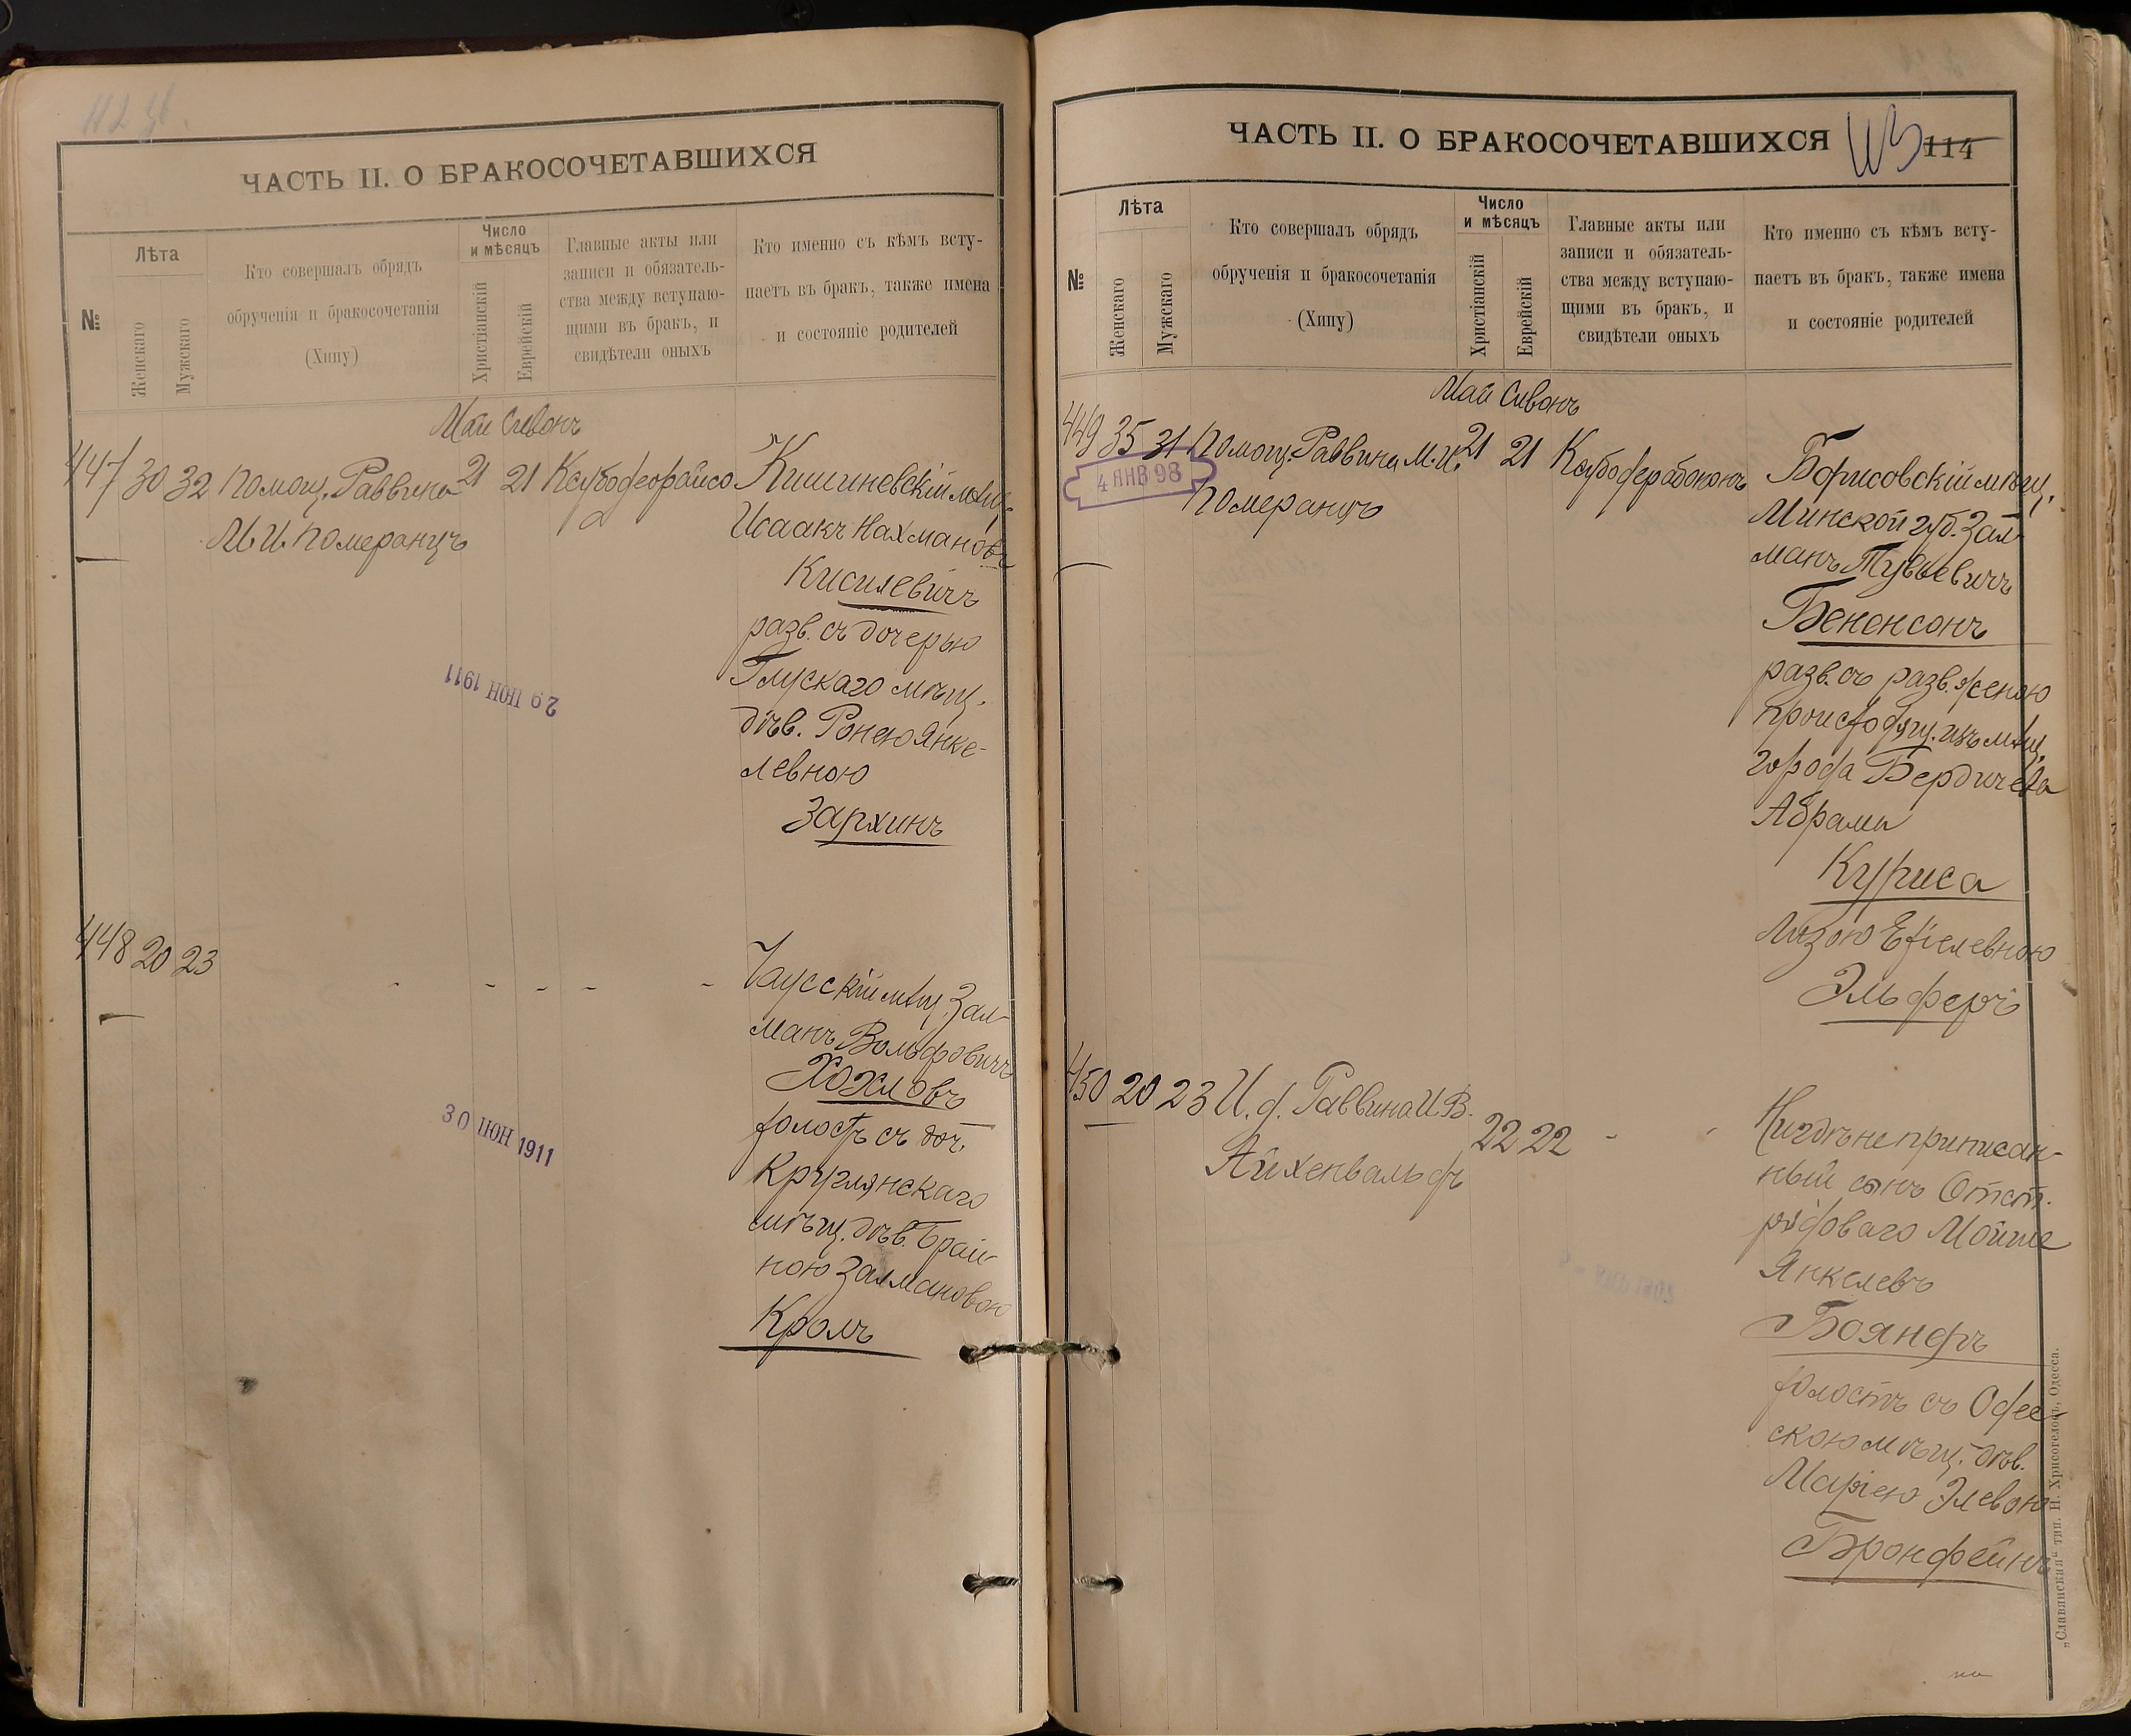 ЧАСТЬ II. О БРАКОСОЧЕТАВШИХСЯ
№
Лѣта
Женскаго
Мужскаго
Кто совершалъ обрядъ
обрученія и бракосочетанія
(Хипу)
Число
и мѣсяцъ
Христіанскій
Еврейскій
Главные акты или
записи и обязатель-
ства между вступаю-
щими въ бракъ, и
свидѣтели оныхъ
Кто именно съ кѣмъ всту-
паетъ въ бракъ, также имена
и состояніе родителей
Май Сивонъ
447 30 32 Помощ. Раввина 21 21
М. И. Померанцъ
Кишиневскій мѣщ.
Исаакъ Нахмановъ
Кисилевичъ
разв. съ дочерью
Глускаго мѣщ.
дѣв. Ронею Янке-
левною
Зархинъ
29 ІЮН 1911
448 20 23 - - - - -
Чаусскій мѣщ. Зал-
манъ Вольфовичъ
Хохловъ
холостъ съ доч.
Круглянскаго
мѣщ. дѣв. Брай-
ною Залмановою
Кролъ
30 ІЮН 1911
ЧАСТЬ II. О БРАКОСОЧЕТАВШИХСЯ
113 114
№
Лѣта
Женскаго
Мужскаго
Кто совершалъ обрядъ
обрученія и бракосочетанія
(Хипу)
Число
и мѣсяцъ
Христіанскій
Еврейскій
Главные акты или
записи и обязатель-
ства между вступаю-
щими въ бракъ, и
свидѣтели оныхъ
Кто именно съ кѣмъ всту-
паетъ въ бракъ, также имена
и состояніе родителей
Май Сивонъ
449 35 31 Помощ. Раввина М. И. 21 21
Померанцъ
4 ЯНВ 98
Борисовскій мѣщ.
Минской губ. Зал-
манъ Тувьевичъ
Бененсонъ
разв. съ разв. женою
происходящ. изъ мѣщ.
города Бердичева
Абрама
Куриса
Лизою Ехіелевною
Эльферъ
450 20 23 И. д. Раввина И. В. 22 22 - -
Айхенвальдъ
Нигдѣ не приписан-
ный сынъ Отст.
рядоваго Мойше
Янкелевъ
Бояндъ
холостъ съ Одес-
скою мѣщ. дѣв.
Маріею Элевою
Бронфейнъ
„Славянская“ тип. Н. Хрисогелосъ, Одесса.